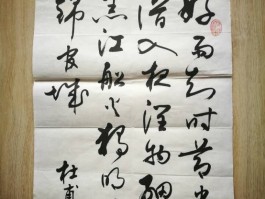 好雨知时节当
潜入夜润物细
黑江船火独明
锦官城
杜甫